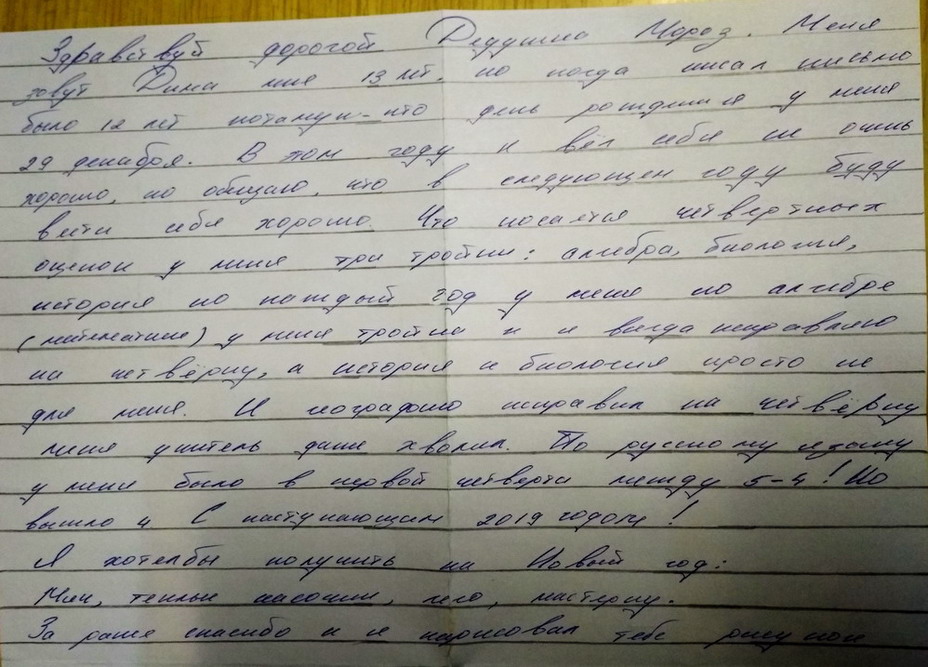 Здравствуй дорогой Дедушка Мороз. Меня
зовут Дима мне 13 лет, но когда писал письмо
было 12 лет потамучто день рождения у меня
29 декабря. В том году я вёл себя не очень
хорошо, но обещаю, что в следующем году буду
вести себя хорошо. Что косается четвертных
оценок у меня три тройки: алгебра, биология,
история но каждый год у меня по алгебре
(математике) у меня тройка и я всегда исправляю
на четвёрку, а история и биология просто не
для меня. И географию исправил на четвёрку
меня учитель даже хвалил. По русскому языку
у меня было в первой четверти между 5-4! Но
вышло 4 С наступающим 2019 годом!
Я хотелбы получить на Новый год:
Мяч, теплые носочки, лего, мастерку.
За ранее спасибо и я нарисовал тебе рисунок